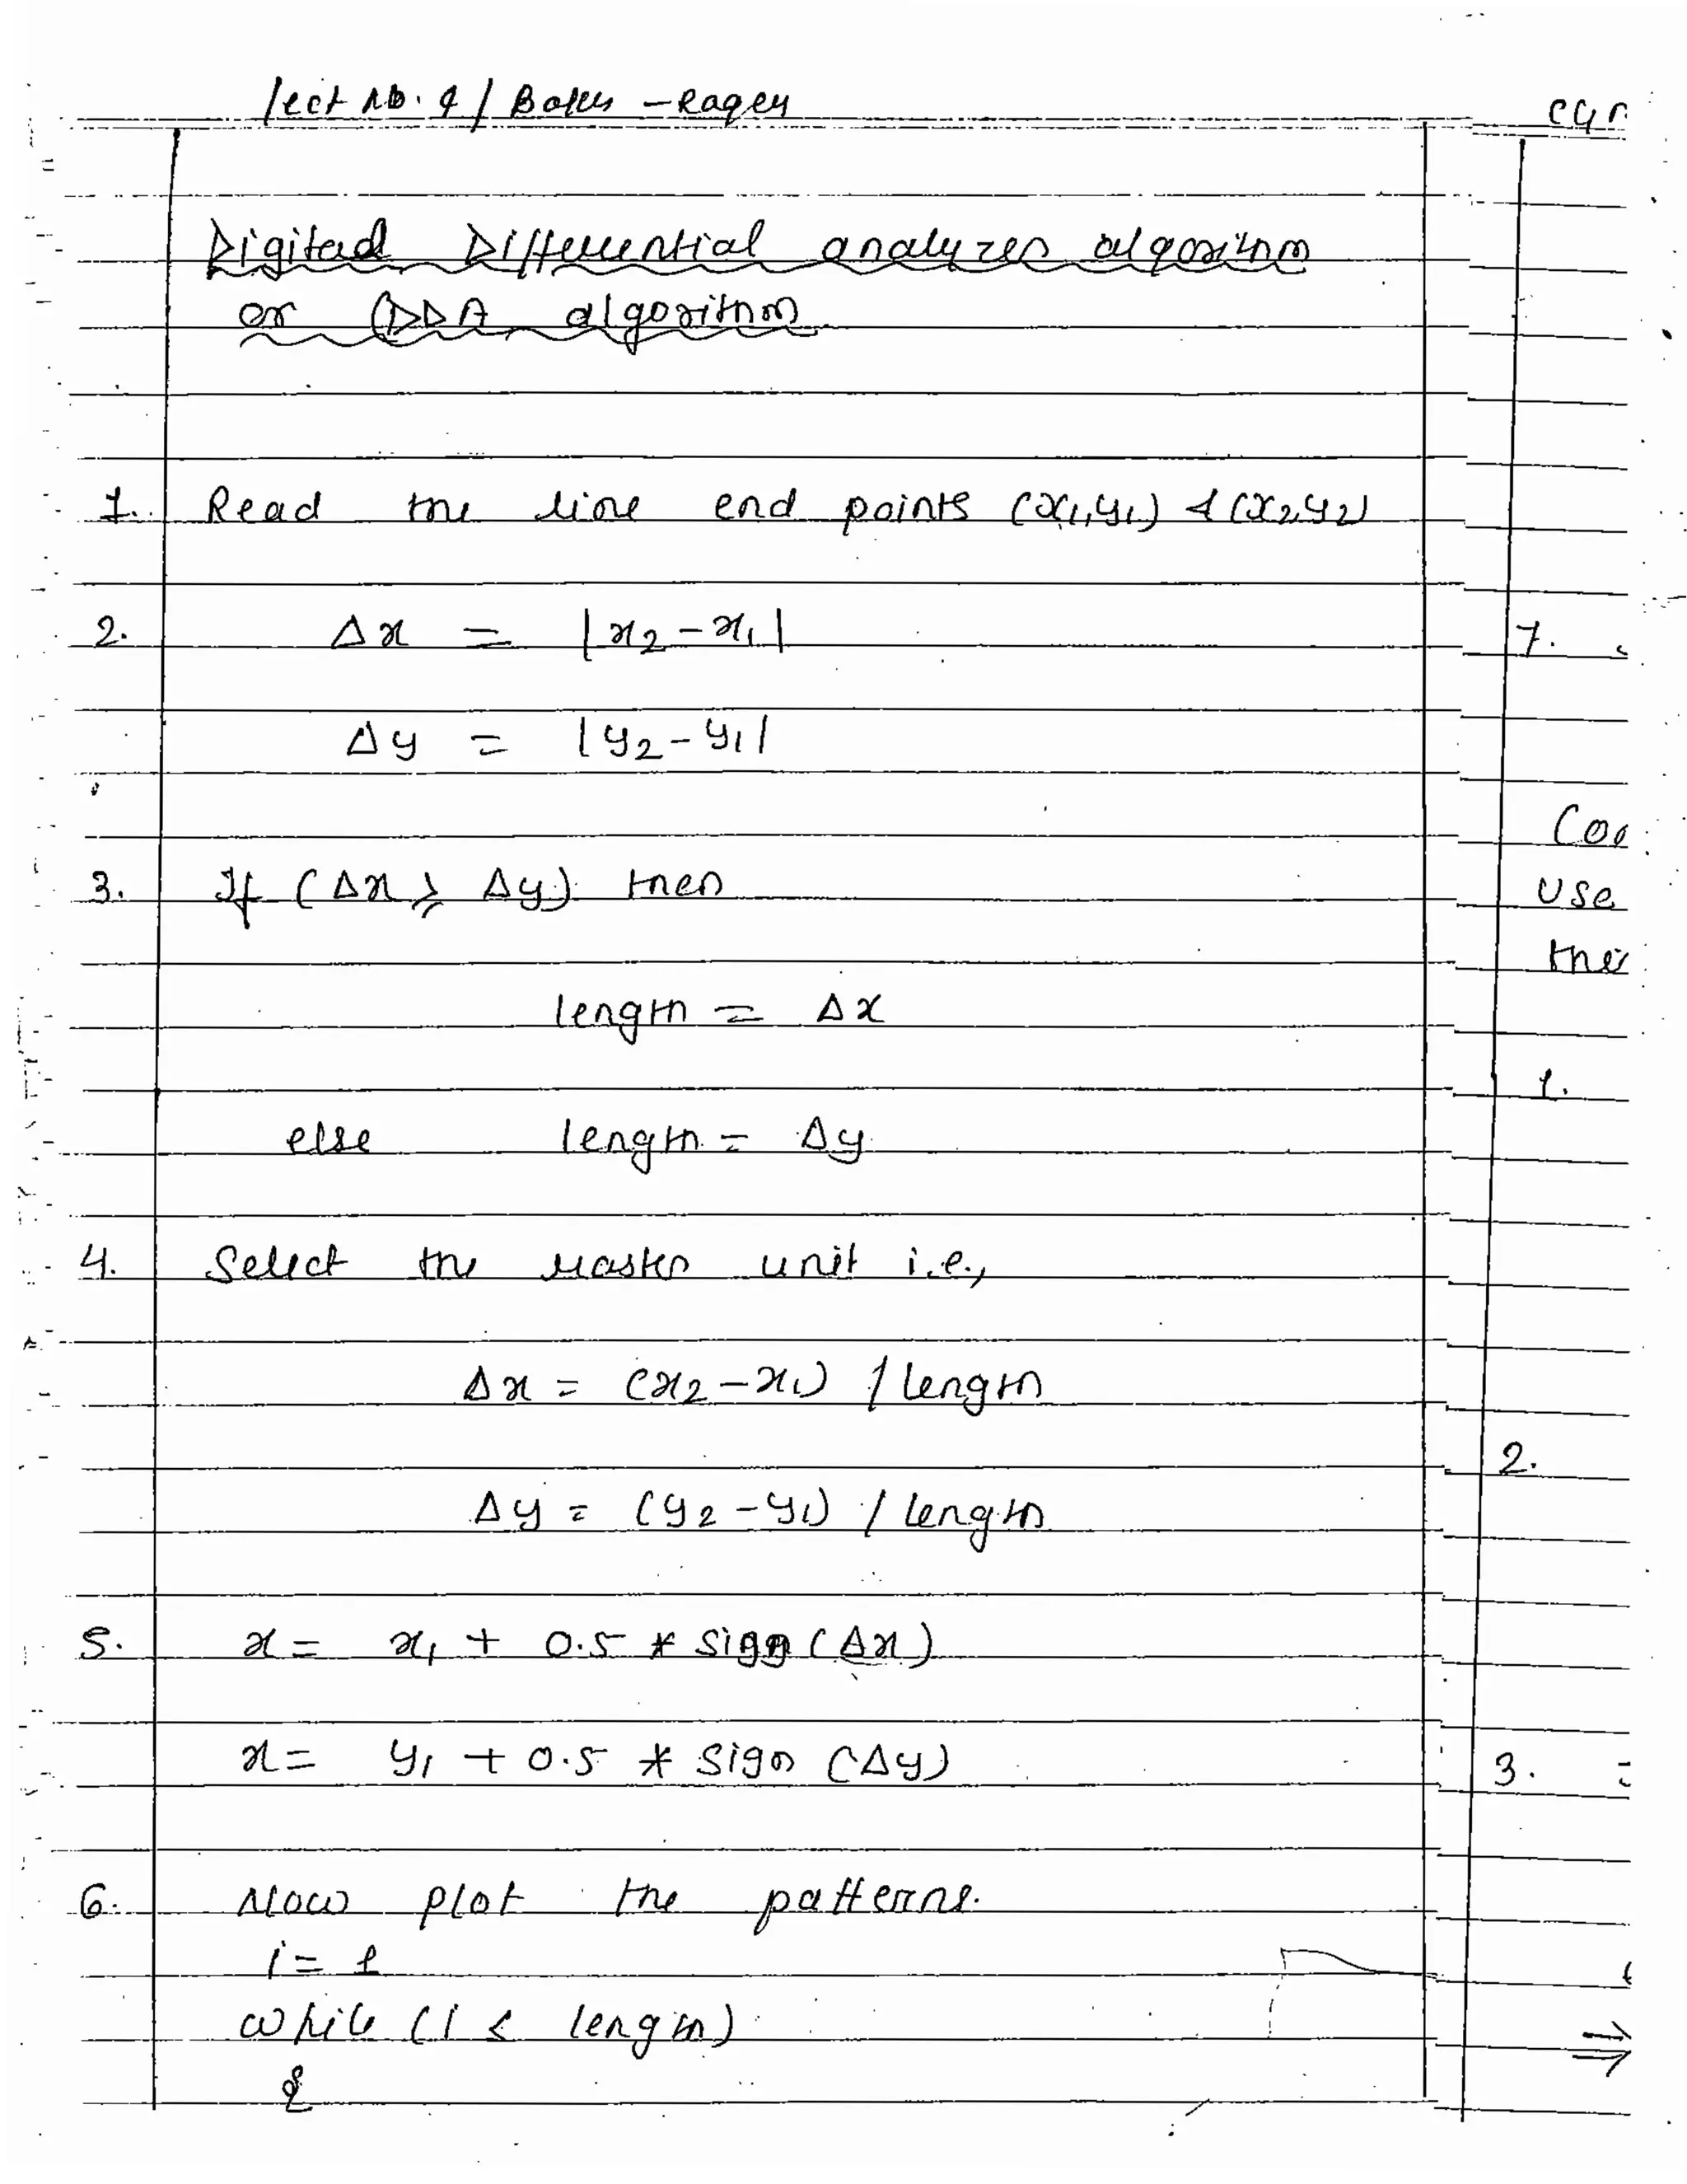 Lect No. 4 /
Digital Differential analyzer algorithm
or (DDA algorithm
1. Read the line end points (x1,y1) & (x2,y2)
2. Δx = |x2-x1|
Δy = |y2-y1|
3. If (Δx ≥ Δy) then
length = Δx
else length = Δy
4. Select the raster unit i.e.,
Δx = (x2-x1) / length
Δy = (y2-y1) / length
5. x = x1 + 0.5 * sign (Δx)
x = y1 + 0.5 * sign (Δy)
6. Now plot the patterns.
i = 1
while (i ≤ length)
{
7.
use
1.
2.
3.
⇒